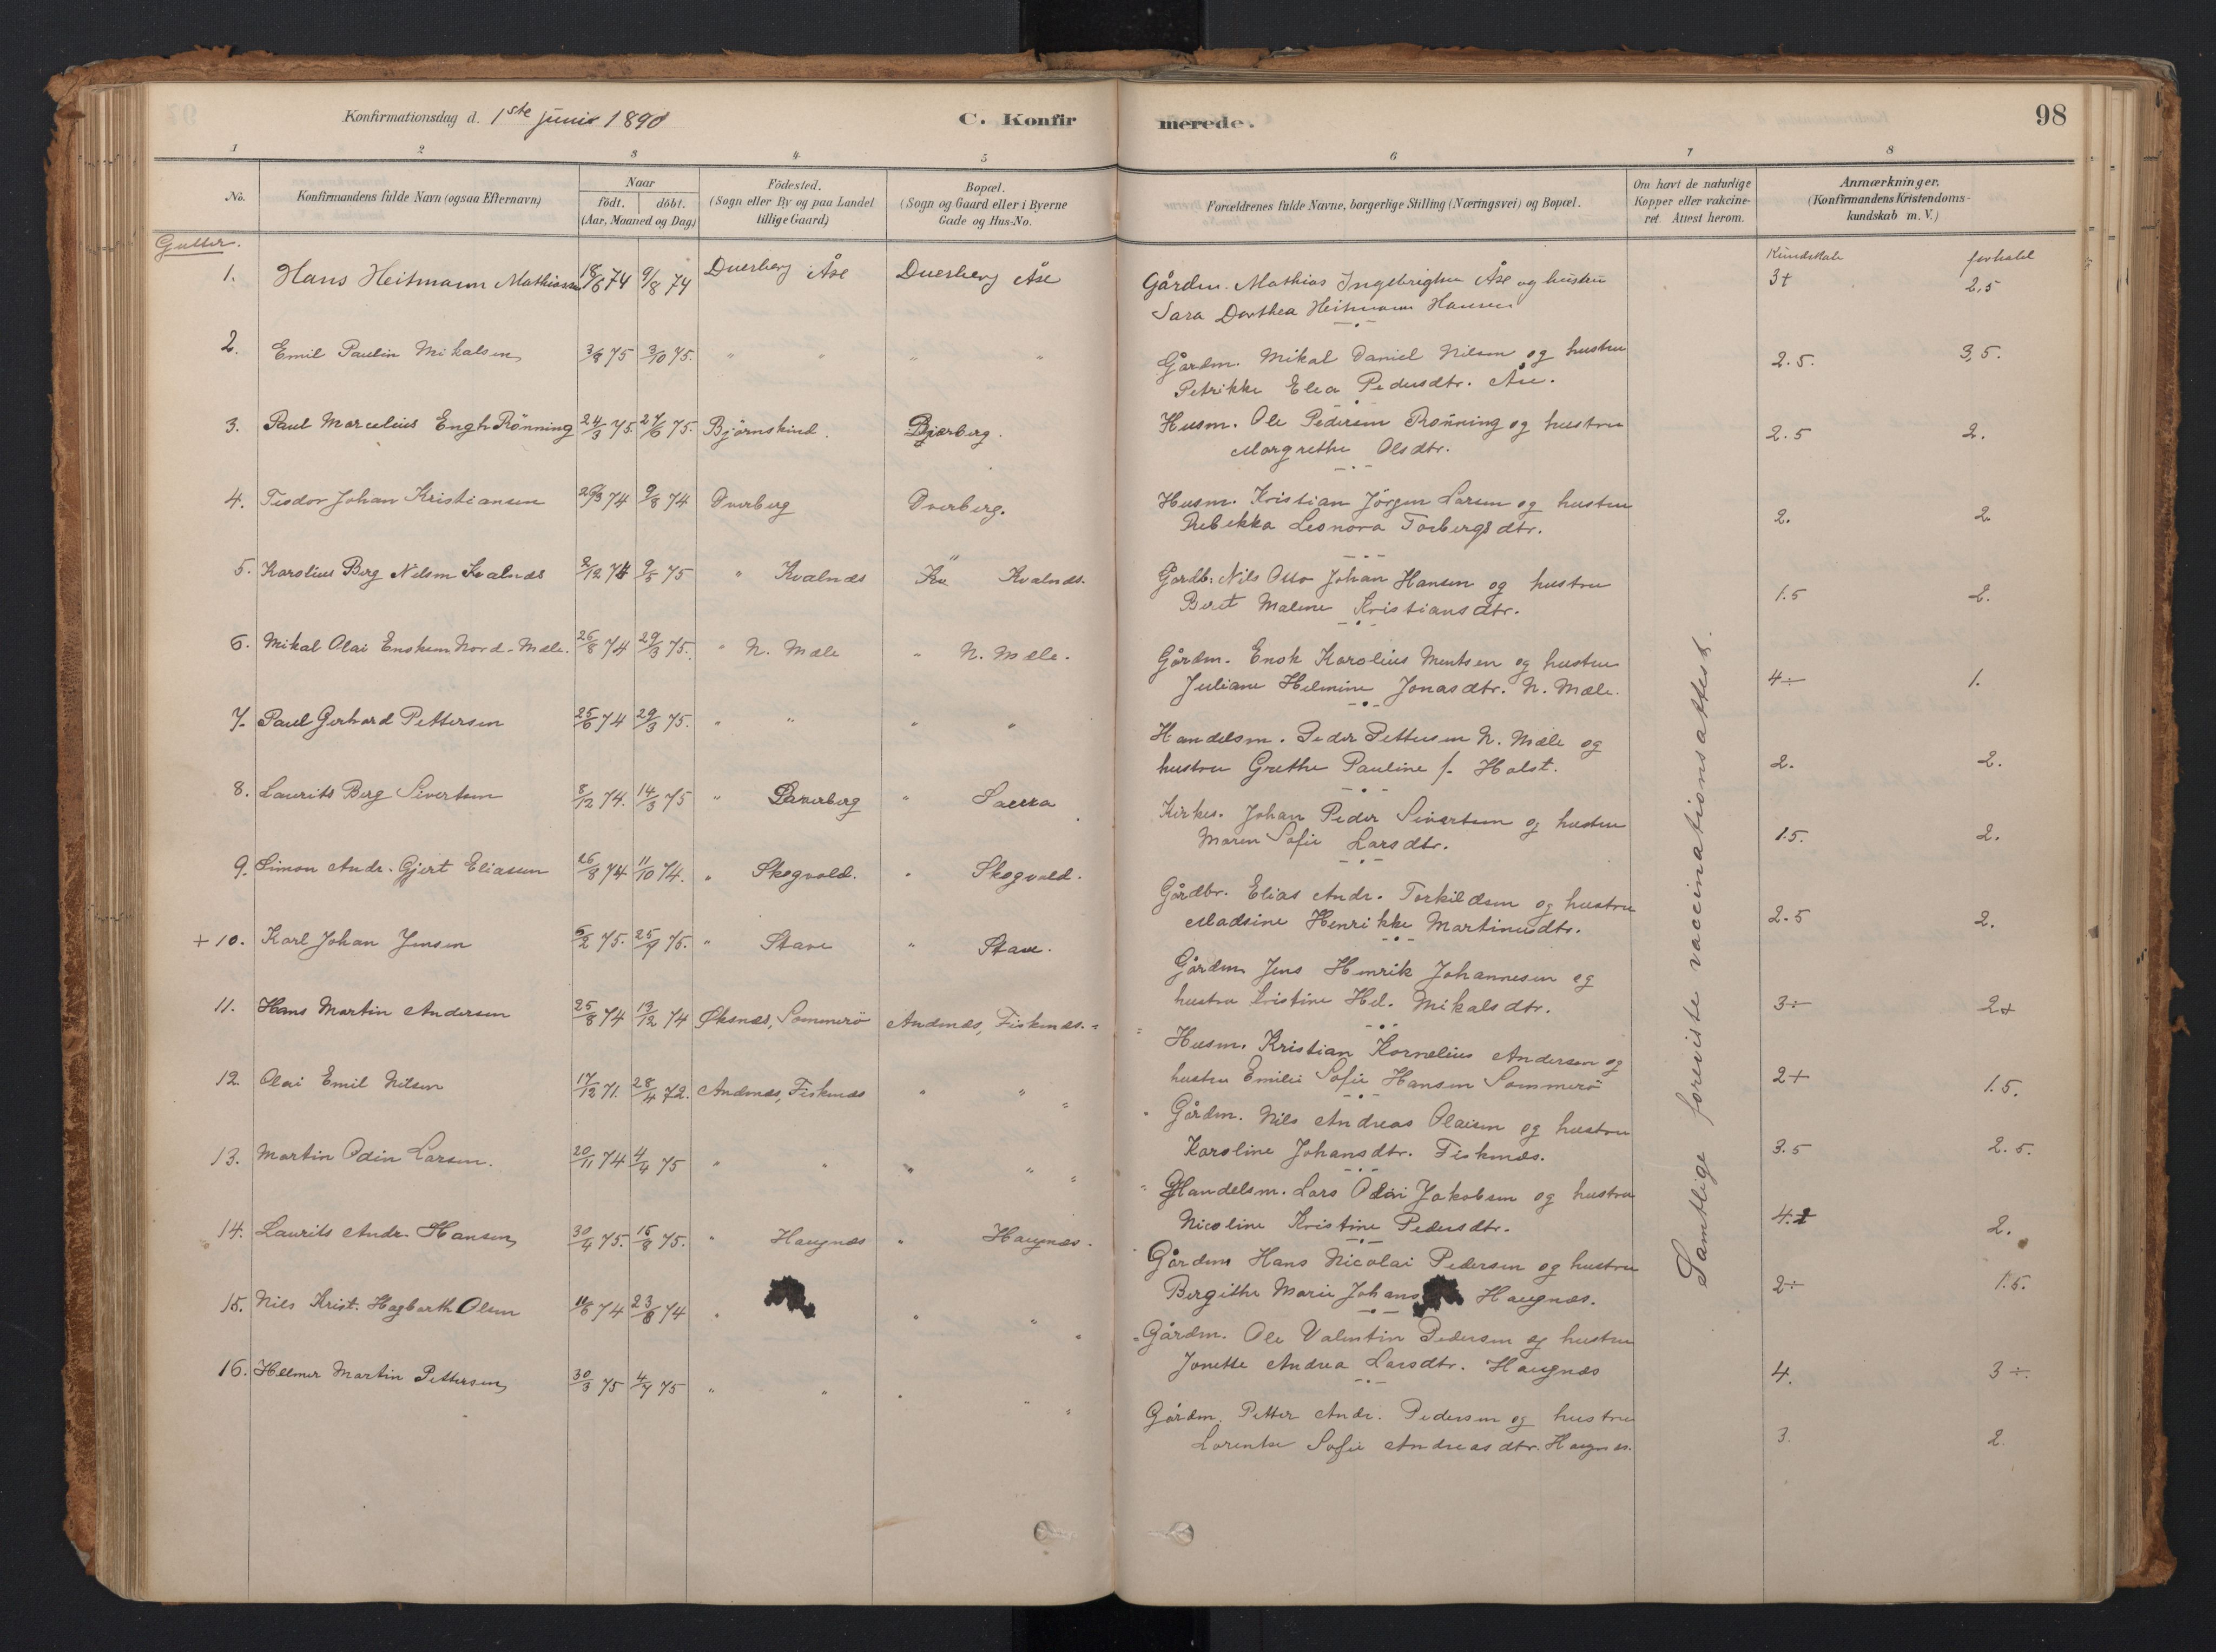 Konfirmationsdag d. 1ste juni 1890
C. Konfirmerede.
98
1 2 3 4 5 6 7 8
No.
Konfirmandens fulde Navn (ogsaa Efternavn)
Naar
födt. döbt.
(Aar, Maaned og Dag)
Födested.
(Sogn eller By og paa Landet
tillige Gaard)
Bopæl.
(Sogn og Gaard eller i Byerne
Gade og Hus-No.
Forældrenes fulde Navne, borgerlige Stilling (Næringsvei) og Bopæl.
Om havt de naturlige
Kopper eller vakcine-
ret. Attest herom.
Anmærkninger.
(Konfirmandens Kristendoms-
kundskab m. V.)
Gutter.
Kundskab forhold
1. Hans Heitmann Mathiassen 18/6 74 9/8 74 Dverberg Åse Dverberg Åse Gårdm. Mathias Ingebrigtsen Åse og hustru
Sara Dorthea Heitmann Hansen
3+ 2,5
2. Emil Paulin Mikalsen 3/8 75 3/10 75. " " " " Gårdm. Mikal Daniel Nilsen og hustru
Petrikke Elea Pedersdtr. Åse.
2.5. 3,5.
3. Paul Marcelius Engh Rönning 24/3 75. 27/6 75. Björnskind. Bjerberg. Husm. Ole Pedersen Rønning og hustru
Margrethe Olsdtr.
2.5 2.
4. Teodor Johan Kristiansen 29/3 74 9/8 74 Dverberg Dverberg. Husm. Kristian Jörgen Larsen og hustru
Rebekka Leonora Torbergsdtr.
2. 2
5. Karolius Berg Nilsen Kvalnæs 2/12 74 9/5 75 " Kvalnæs " Kvalnæs. Gardb. Nils Otto Johan Hansen og hustru
Berit Malene Kristiansdtr.
1.5 2.
6. Mikal Olai Enoksen Nord-Mæle. 26/8 74 29/3 75. " N. Mæle " N. Mæle. Gårdm. Enok Karolius Mentsen og hustru
Juliane Helmine Jonasdtr. N. Mæle.
4÷ 1.
7. Paul Gerhard Pettersen 25/6 74 29/3 75. " " " " Handelsm. Peder Pettersen N. Mæle og
hustru Grethe Pauline f. Holst.
2. 2.
8. Laurits Berg Sivertsen 8/12 74. 14/3 75 " Dverberg " Saura Kirkes. Johan Peder Sivertsen og hustru
Maren Sofie Larsdtr.
1.5. 2.
9. Simon Andr. Gjert Eliassen 26/8 74 11/10 74. " Skogvold. " Skogvold. Gårdbr. Elias Andr. Torkildsen og hustru
Madsine Henrikke Martinusdtr.
2.5 2.
+ 10. Karl Johan Jensen 6/2 75. 25/7 75. " Stave " Stave. Gårdm Jens Henrik Johannesen og
hustru Kristine Hel. Mikalsdtr.
3÷ 2+
11. Hans Martin Andersen 25/8 74 13/12 74 Øksnæs, Sommerö Andenæs, Fiskenæs. Husm. Kristian Kornelius Andersen og
hustru Emilie Sofie Hansen Sommerö
2+ 1.5.
12. Olai Emil Nilsen 17/12 71. 28/4 72. Andenæs, Fiskenæs " " " Gårdm. Nils Andreas Olaisen og hustru
Karoline Johansdtr. Fiskenæs.
3.5 2.5.
13. Martin Odin Larsen. 20/11 74 4/4 75 " " " " Handelsm. Lars Odin Jakobsen og hustru
Nicoline Kristine Pedersdtr.
4. 2.
14. Laurits Andr. Hansen 30/4 75. 15/8 75. " Haugnæs " Haugnæs. Gårdm Hans Nicolai Pedersen og hustru
Bergithe Marie Johans Haugnæs.
2÷ 1.5.
15. Nils Krist. Hagbarth Olsen 11/6 74 23/8 74 " " " Gårdm. Ole Valentin Pedersen og hustru
Jonette Andrea Larsdtr. Haugnæs
4. 3÷.
16. Helmer Martin Pettersen 30/3 75 4/7 75 " " " " Gårdm. Petter Andr. Pedersen og hustru
Lorentse Sofie Andreasdtr. Haugnæs.
3. 2.
Samtlige foreviste vaccinationsattest.